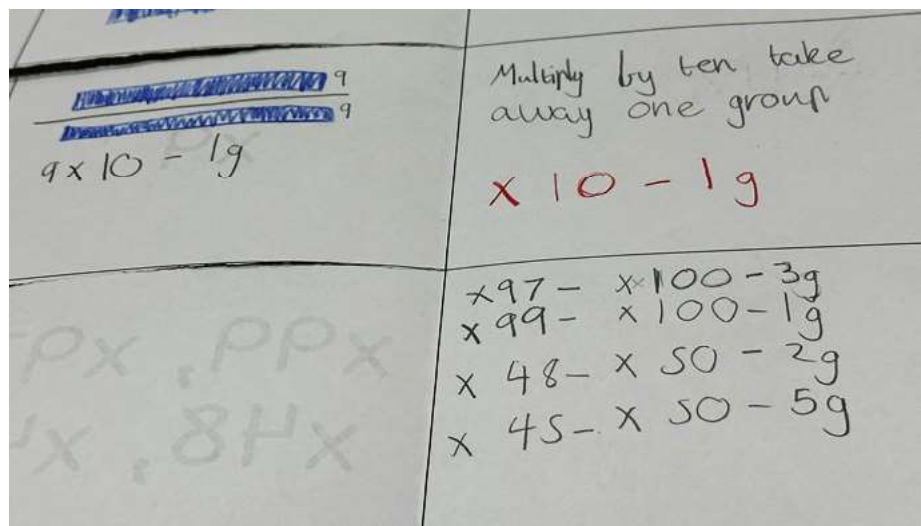 9
9
9 x 10 - 1g
Multiply by ten take
away one group
x 10 - 1g
x97 - x100 - 3g
x99 - x100 - 1g
x 48 - x 50 - 2g
x 45 - x 50 - 5g
x99, x9
x48, x4